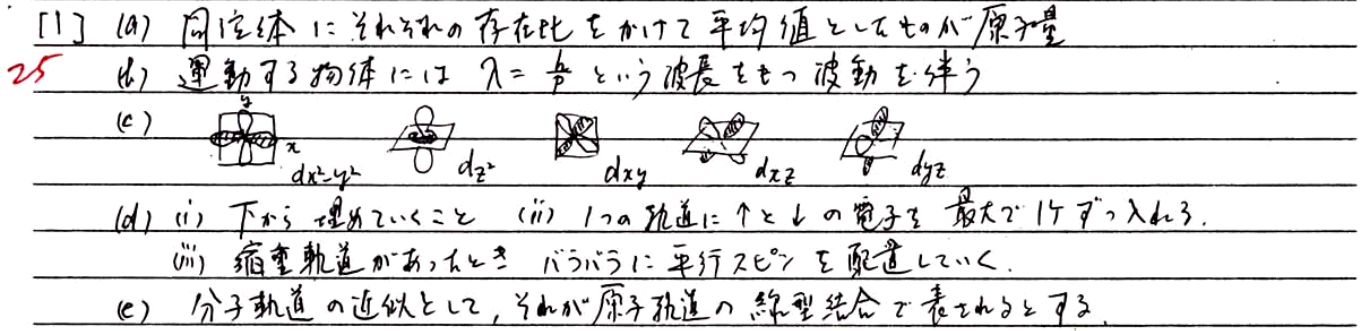 [1] (a) 同位体にそれぞれの存在比をかけて平均値としたものが原子量
25 (b) 運動する物体には λ = h/p という波長をもつ波動を伴う
(c) y x dx²-y² dz² dxy dxz dyz
(d) (i) 下から埋めていくこと (ii) 1つの軌道に↑と↓の電子を最大で1ケずつ入れる.
(iii) 縮重軌道があったとき バラバラに平行スピンを配置していく.
(e) 分子軌道の近似として, それが原子軌道の線型結合で表されるとする.